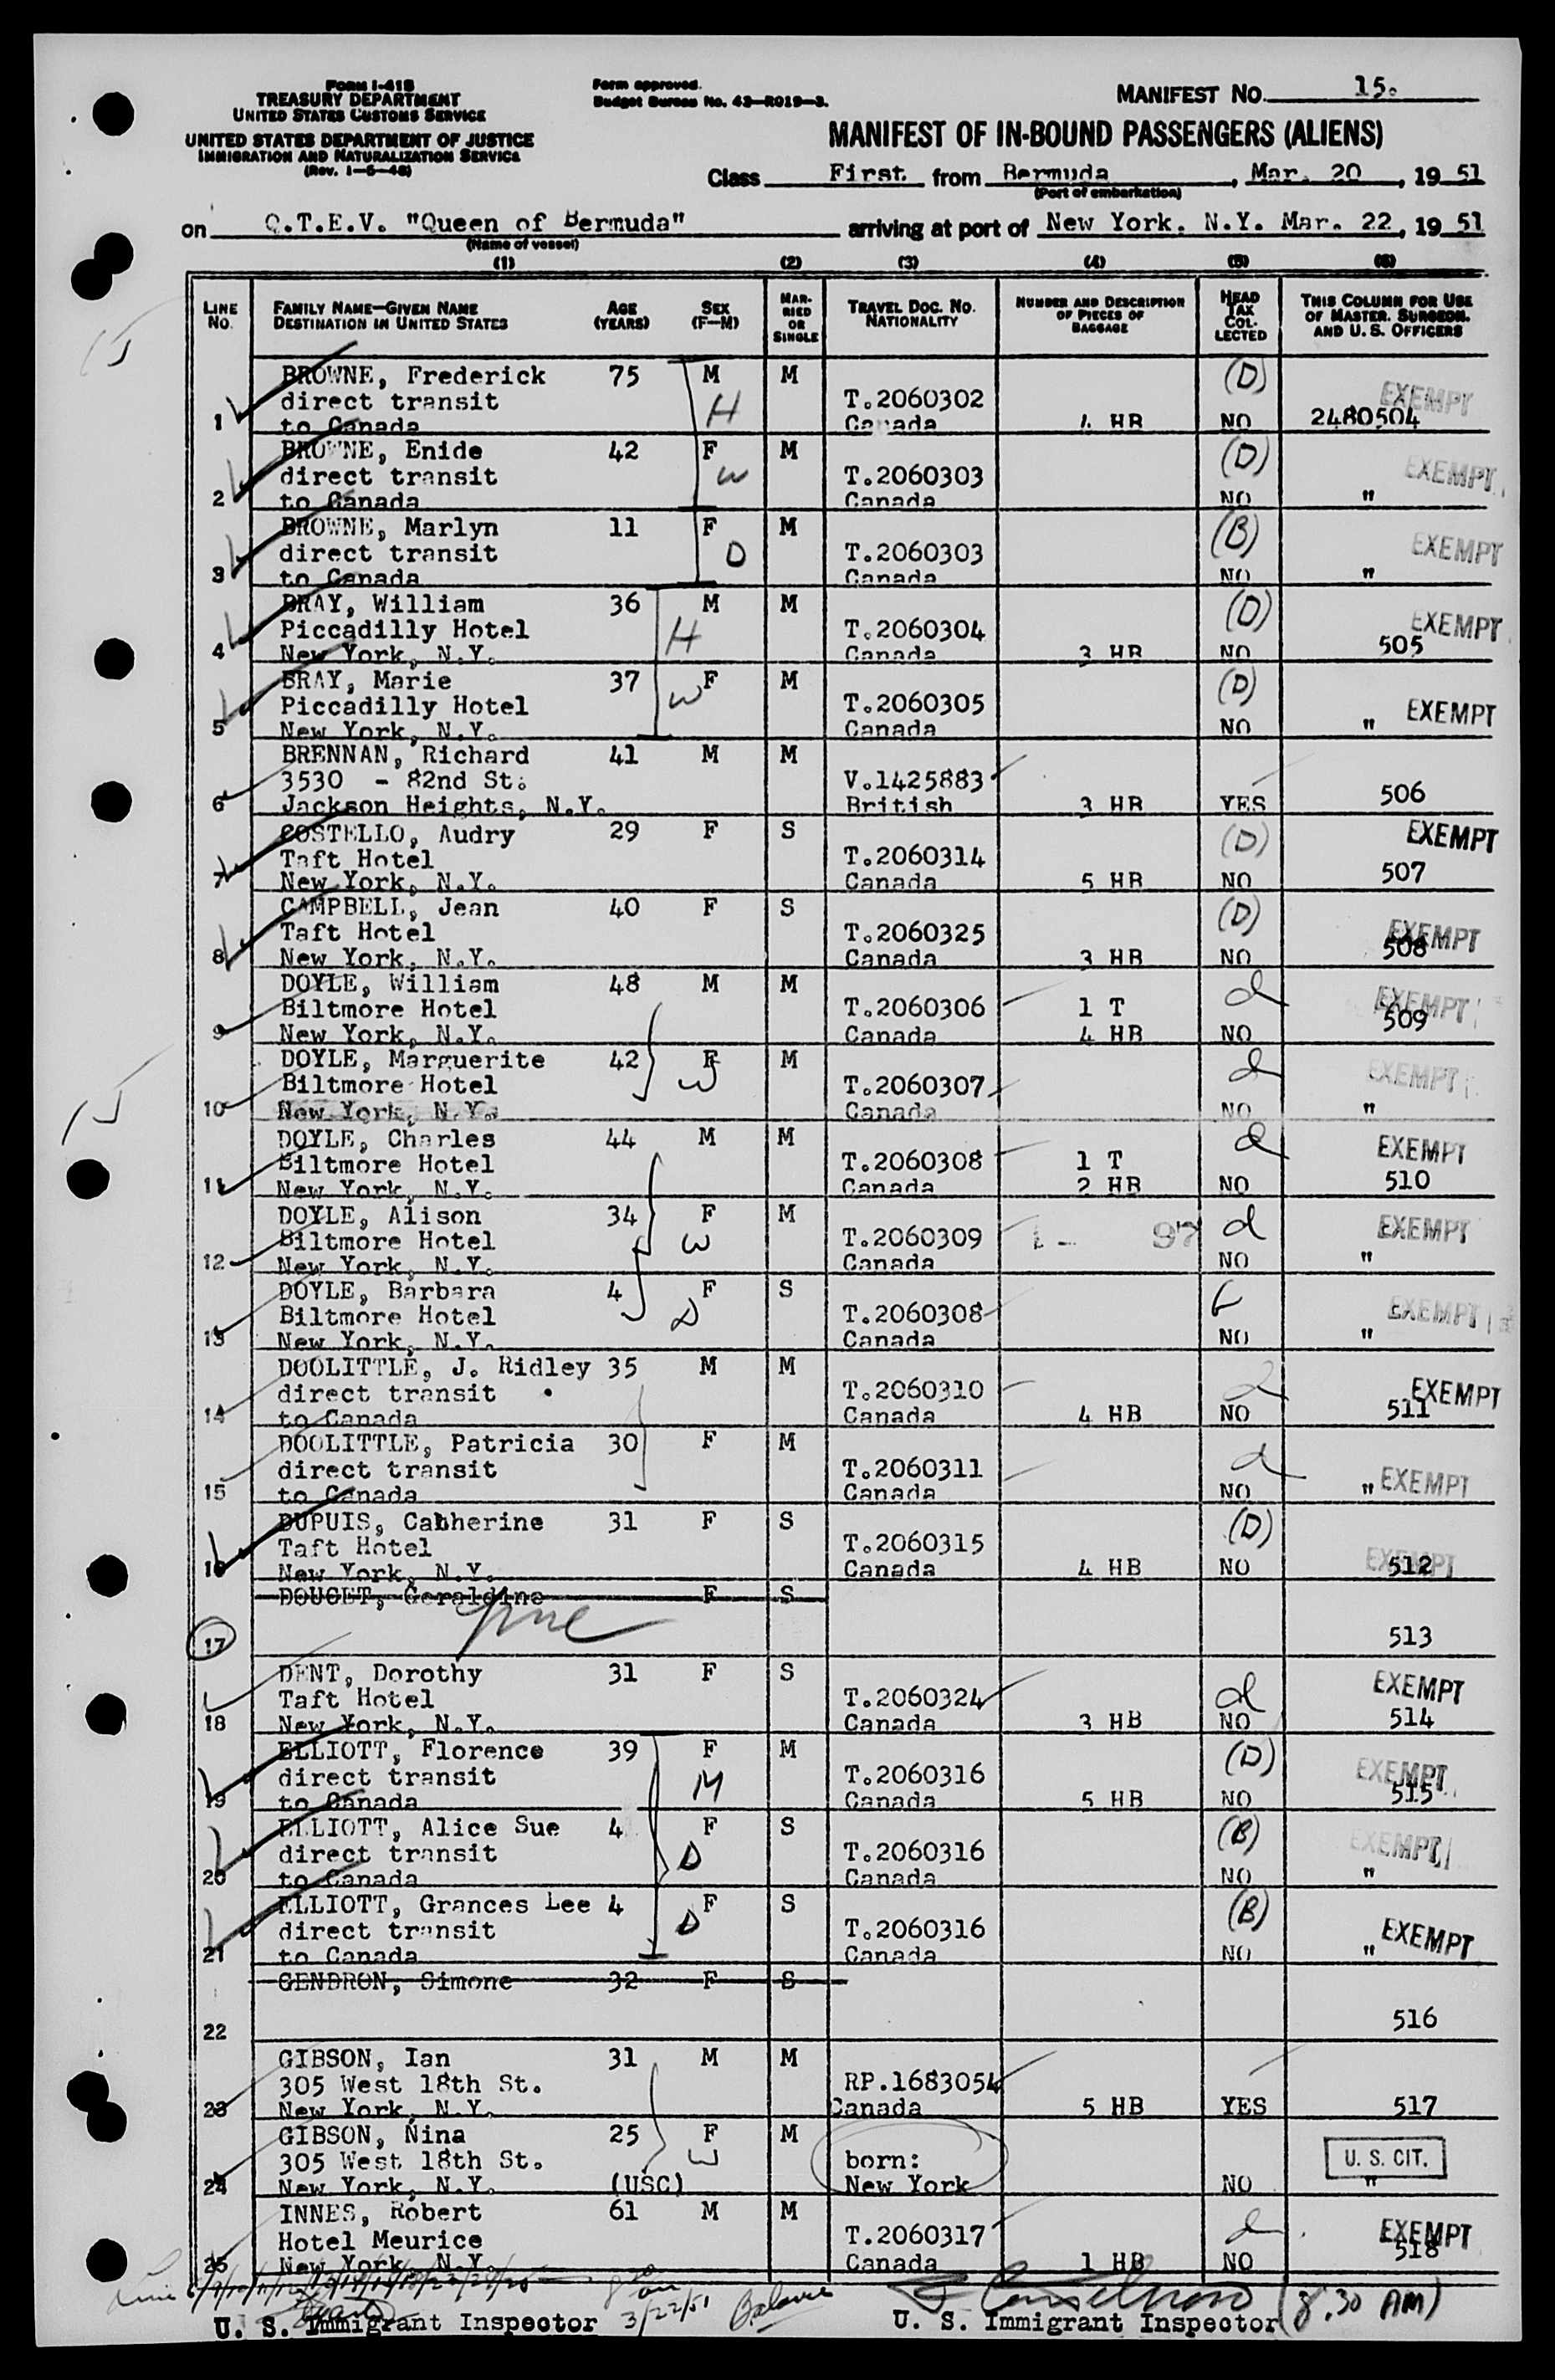 Form I-418
TREASURY DEPARTMENT
UNITED STATES CUSTOMS SERVICE
UNITED STATES DEPARTMENT OF JUSTICE
IMMIGRATION AND NATURALIZATION SERVICE
(Rev. 1-5-48)
Form approved.
Budget Bureau No. 43-R019-3.
MANIFEST NO. 15.
MANIFEST OF IN-BOUND PASSENGERS (ALIENS)
Class First from Bermuda, Mar. 20, 19 51
(Port of embarkation)
on Q.T.E.V. "Queen of Bermuda" arriving at port of New York. N.Y. Mar. 22, 19 51
(Name of vessel)
(1) (2) (3) (4) (5) (6)
LINE NO. FAMILY NAME—GIVEN NAME DESTINATION IN UNITED STATES AGE (YEARS) SEX (F—M) MARRIED OR SINGLE TRAVEL DOC. NO. NATIONALITY NUMBER AND DESCRIPTION OF PIECES OF BAGGAGE HEAD TAX COLLECTED THIS COLUMN FOR USE OF MASTER, SURGEON, AND U. S. OFFICERS
BROWNE, Frederick 75 M M (D)
direct transit H T.2060302 EXEMPT
1 to Canada Canada 4 HB NO 2480504
BROWNE, Enide 42 F M (D)
direct transit W T.2060303 EXEMPT
2 to Canada Canada NO "
BROWNE, Marlyn 11 F M (B)
direct transit D T.2060303 EXEMPT
3 to Canada Canada NO "
BRAY, William 36 M M (D)
Piccadilly Hotel H T.2060304 EXEMPT
4 New York, N.Y. Canada 3 HB NO 505
BRAY, Marie 37 F M (D)
Piccadilly Hotel W T.2060305 EXEMPT
5 New York, N.Y. Canada NO "
BRENNAN, Richard 41 M M
3530 - 82nd St. V.1425883
6 Jackson Heights, N.Y. British 3 HB YES 506
COSTELLO, Audry 29 F S (D) EXEMPT
Taft Hotel T.2060314
7 New York, N.Y. Canada 5 HB NO 507
CAMPBELL, Jean 40 F S (D)
Taft Hotel T.2060325 EXEMPT
8 New York, N.Y. Canada 3 HB NO 508
DOYLE, William 48 M M d
Biltmore Hotel T.2060306 1 T EXEMPT
9 New York, N.Y. Canada 4 HB NO 509
DOYLE, Marguerite 42 F M d
Biltmore Hotel W T.2060307 EXEMPT
10 New York, N.Y. Canada NO "
DOYLE, Charles 44 M M d
Biltmore Hotel T.2060308 1 T EXEMPT
11 New York, N.Y. Canada 2 HB NO 510
DOYLE, Alison 34 F M d
Biltmore Hotel W T.2060309 EXEMPT
12 New York, N.Y. Canada NO "
DOYLE, Barbara 4 F S
Biltmore Hotel D T.2060308 EXEMPT
13 New York, N.Y. Canada NO "
DOOLITTLE, J. Ridley 35 M M d
direct transit T.2060310 EXEMPT
14 to Canada Canada 4 HB NO 511
DOOLITTLE, Patricia 30 F M d
direct transit T.2060311 EXEMPT
15 to Canada Canada NO "
DUPUIS, Catherine 31 F S (D)
Taft Hotel T.2060315 EXEMPT
16 New York, N.Y. Canada 4 HB NO 512
DOUCET, Geraldine F S
17 513
DENT, Dorothy 31 F S
Taft Hotel T.2060324 d EXEMPT
18 New York, N.Y. Canada 3 HB NO 514
ELLIOTT, Florence 39 F M (D)
direct transit M T.2060316 EXEMPT
19 to Canada Canada 5 HB NO 515
ELLIOTT, Alice Sue 4 F S (B)
direct transit D T.2060316 EXEMPT
20 to Canada Canada NO "
ELLIOTT, Grances Lee 4 F S (B)
direct transit D T.2060316 EXEMPT
21 to Canada Canada NO "
GENDRON, Simone 32 F S
22 516
GIBSON, Ian 31 M M
305 West 18th St. RP.1683054
23 New York, N.Y. Canada 5 HB YES 517
GIBSON, Nina 25 F M
305 West 18th St. W born: U. S. CIT.
24 New York, N.Y. (USC) New York NO "
INNES, Robert 61 M M
Hotel Meurice T.2060317 d EXEMPT
25 New York, N.Y. Canada 1 HB NO 518
3/22/51 Balance (8.30 AM)
U. S. Immigrant Inspector U. S. Immigrant Inspector